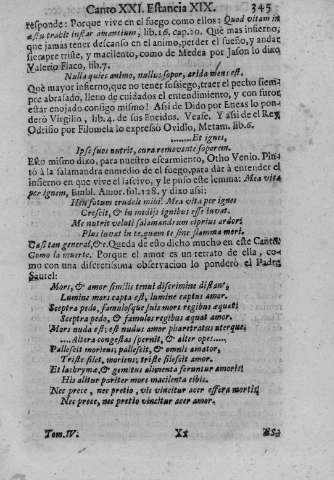 Canto XXI. Estancia XIX. 345
responde: Porque vive en el fuego como ellos: Quod vitam in
æstu trahit instar amantium, lib.16. cap.20. Què mas infierno,
que jamas tener descanso en el animo, perder el sueño, y andar
siempre triste, y macilento, como de Medea por Jason lo dixo
Valerio Flaco, lib.7.
Nulla quies animo, nullus sopor, arida mens est.
Què mayor infierno, que no tener sossiego, traer el pecho siem-
pre abrasado, lleno de cuidados el entendimiento, y con furor
estar enojado consigo mismo! Assi de Dido por Eneas lo pon-
derò Virgilio, lib.4. de sus Eneidos. Vease. Y assi de el Rey
Odrisio por Filomela lo expressò Ovidio, Metam. lib.6.
........Et ignes,
Ipse suos nutrit, cura removente soporem.
Esto mismo dixo, para nuestro escarmiento, Otho Venio. Pin-
tò à la salamandra enmedio de el fuego, para dàr à entender el
infierno en que vive el lascivo, y le puso este lemma: Mea vita
per ignem, Embl. Amor. fol.128. y dixo assi:
Heu fatum crudele mihi! Mea vita per ignes
Crescit, & in medijs ignibus esse juvat.
Me nutrit veluti salamandram cyprius ardor:
Plus juvat in te, quem te sine flamma mori.
general, &c. Queda de esto dicho mucho en este Canto.
Como la muerte. Porque el amor es un retrato de ella, co-
mo con una discretissima observacion lo ponderò el Padre
Sautel:
Mors, & amor simili tenui discrimine distant;
Lumine mors capta est, lumine captus amor.
Sceptra pedo, famulosque suis mors regibus æquat;
Sceptra pedo, & famulos regibus æquat amor.
Mors nuda est; est nudus amor pharetratus uterque;
....Altera congestas spernit, & alter opes....
Pallescit moriens; pallescit, & omnis amator,
Triste silet, moriens; triste silescit amor.
Et lachrymæ, & gemitus alimenta feruntur amoris;
His alitur pariter mors macilenta cibis.
Nec prece, nec pretio, vis vincitur acer mortis;
Nec prece, nec pretio vincitur acer amor.
Tom.IV. Xx